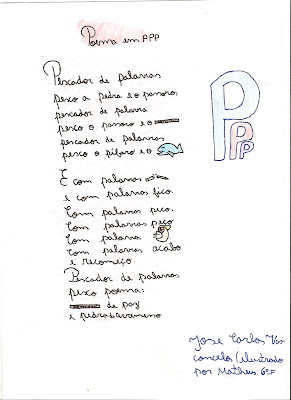 Poema em PPP
Pescador de palavras
pesco a pedra e o pássaro,
pescador de palavra
pesco o pássaro e o
pescador de palavras
pesco o pífaro e o
E com palavras
e com palavras fico.
Com palavras peco.
Com palavras peço
Com palavra
Com palavras acabo
e recomeço.
Pescador de palavras
pesco poema:
de paz
e
P
P
P
José Carlos Vas
concelos (ilustrado
por Matheus 6ºF